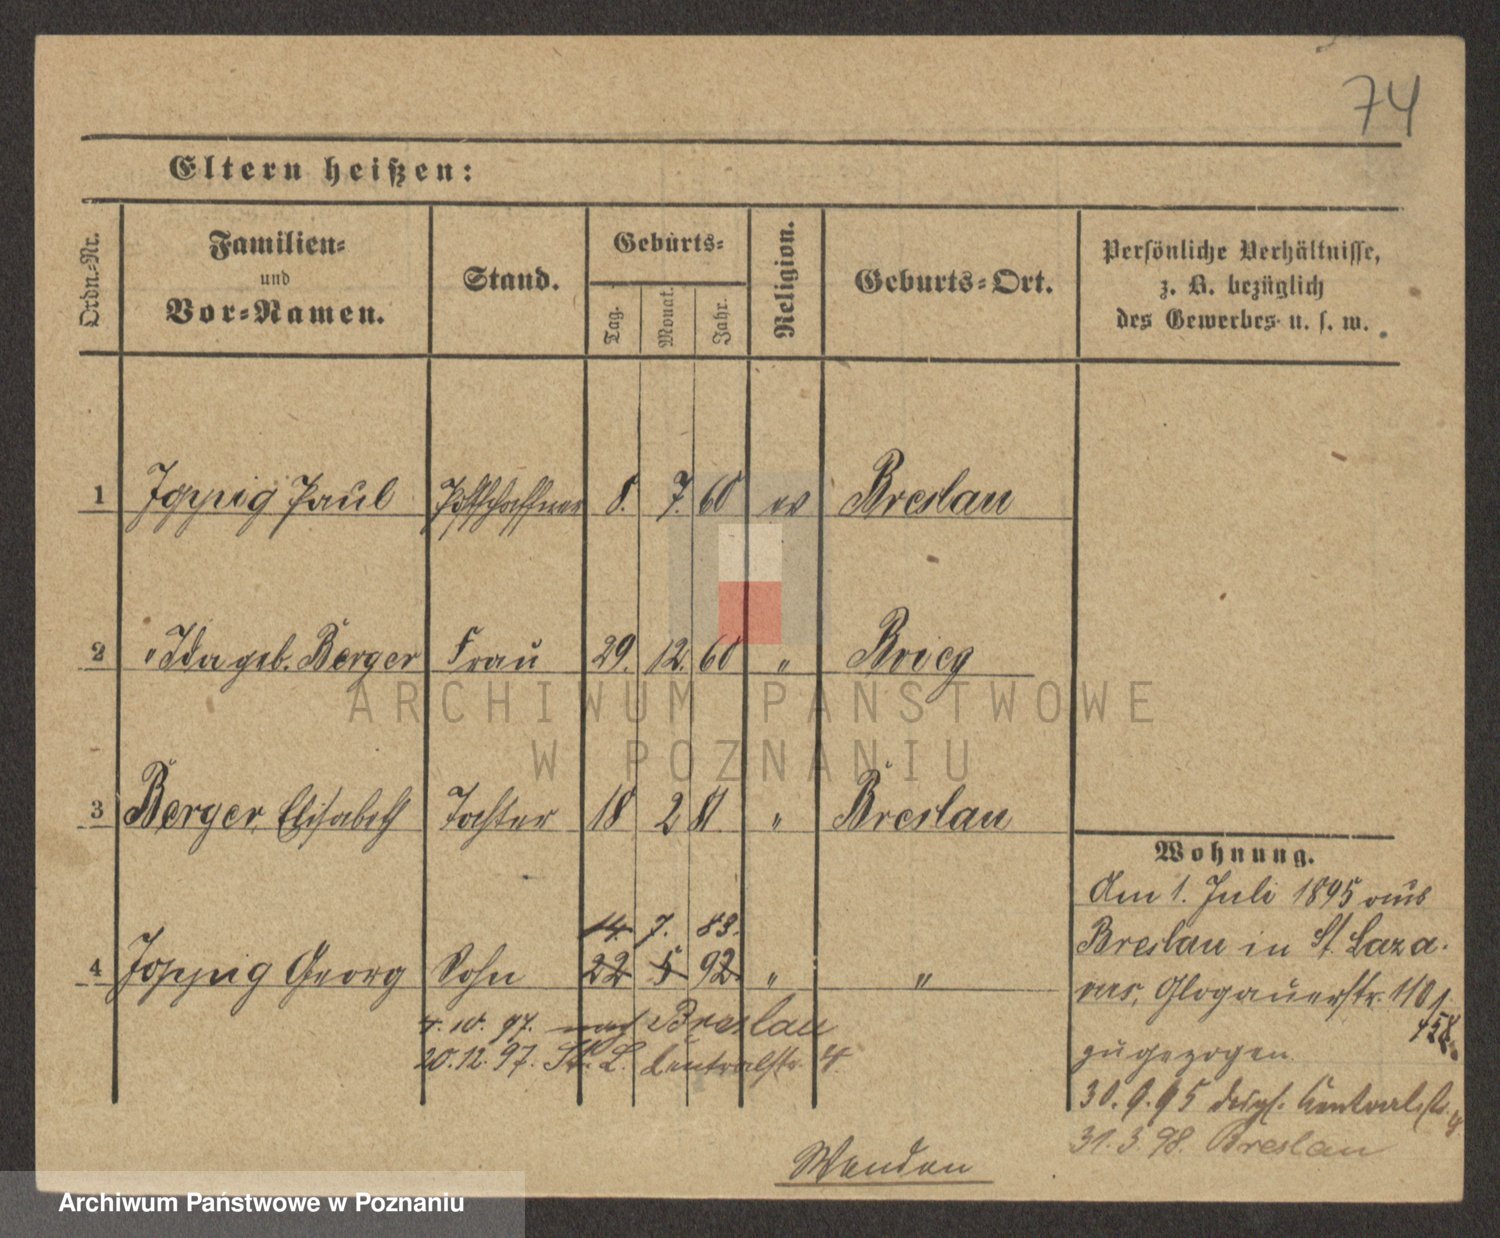 74
Eltern heißen:
Ordn.-Nr.
Familien-
und
Vor-Namen.
Stand.
Geburts-
Tag.
Monat.
Jahr.
Religion.
Geburts-Ort.
Persönliche Verhältnisse,
z. B. bezüglich
des Gewerbes u. s. w.
1 Joppig Paul Postschaffner 8. 7. 60 ev Breslau
2 " Ida geb. Berger Frau 29. 12. 60 " Brieg
3 Berger, Elisabeth Tochter 18 2 81 " Breslau
14. 7. 83.
4 Joppig Georg Sohn 22 5 92 " "
4. 10. 97. nach Breslau
20. 12. 97. St. L. Centralstr. 4
Wohnung.
Am 1. Juli 1895 aus
Breslau in St. Laza-
rus, Glogauerstr. 110
zugezogen.
30. 9. 95 Centralstr. 4
31. 3. 98. Breslau
Wenden
ARCHIWUM PAŃSTWOWE
W POZNANIU
Archiwum Państwowe w Poznaniu